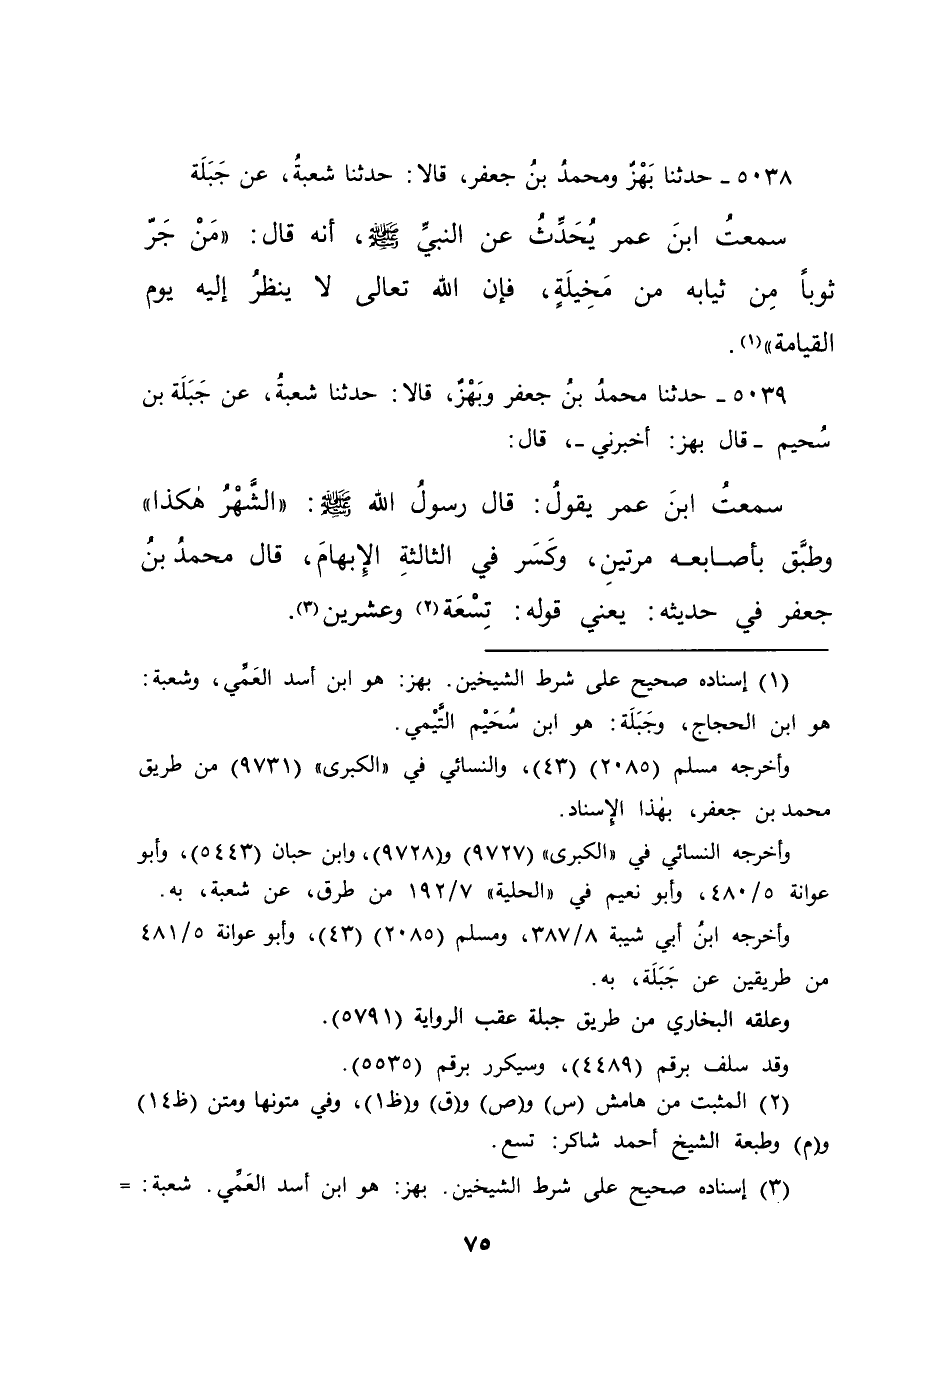 ٥٠٣٨ ـ حدثنا بَهْزٌ ومحمدُ بنُ جعفر، قالا: حدثنا شعبةُ، عن جَبَلَة
سمعتُ ابنَ عمر يُحَدِّثُ عن النبيِّ ﷺ، أنه قال: «مَنْ جَرَّ
ثوباً مِن ثيابه من مَخِيلَةٍ، فإن الله تعالى لا ينظرُ إليه يوم
القيامة»(١).
٥٠٣٩ ـ حدثنا محمدُ بنُ جعفر وبَهْزٌ، قالا: حدثنا شعبةُ، عن جَبَلَة بن
سُحيم ـ قال بهز: أخبرني ـ، قال:
سمعتُ ابنَ عمر يقولُ: قال رسولُ الله ﷺ: «الشَّهْرُ هٰكذا»
وطبَّق بأصابعه مرتينِ، وكَسَر في الثالثةِ الإِبهامَ، قال محمدُ بنُ
جعفر في حديثه: يعني قوله: تِسْعَة(٢) وعشرين(٣).
(١) إسناده صحيح على شرط الشيخين. بهز: هو ابن أسد العَمِّي، وشعبة:
هو ابن الحجاج، وجَبَلَة: هو ابن سُحَيْم التَّيْمي.
وأخرجه مسلم (٢٠٨٥) (٤٣)، والنسائي في «الكبرى» (٩٧٣١) من طريق
محمد بن جعفر، بهٰذا الإِسناد.
وأخرجه النسائي في «الكبرى» (٩٧٢٧) و(٩٧٢٨)، وابن حبان (٥٤٤٣)، وأبو
عوانة ٤٨٠/٥، وأبو نعيم في «الحلية» ١٩٢/٧ من طرق، عن شعبة، به.
وأخرجه ابنُ أبي شيبة ٣٨٧/٨، ومسلم (٢٠٨٥) (٤٣)، وأبو عوانة ٤٨١/٥
من طريقين عن جَبَلَة، به.
وعلقه البخاري من طريق جبلة عقب الرواية (٥٧٩١).
وقد سلف برقم (٤٤٨٩)، وسيكرر برقم (٥٥٣٥).
(٢) المثبت من هامش (س) و(ص) و(ق) و(ظ١)، وفي متونها ومتن (ظ١٤)
و(م) وطبعة الشيخ أحمد شاكر: تسع.
(٣) إسناده صحيح على شرط الشيخين. بهز: هو ابن أسد العَمِّي. شعبة: =
٧٥